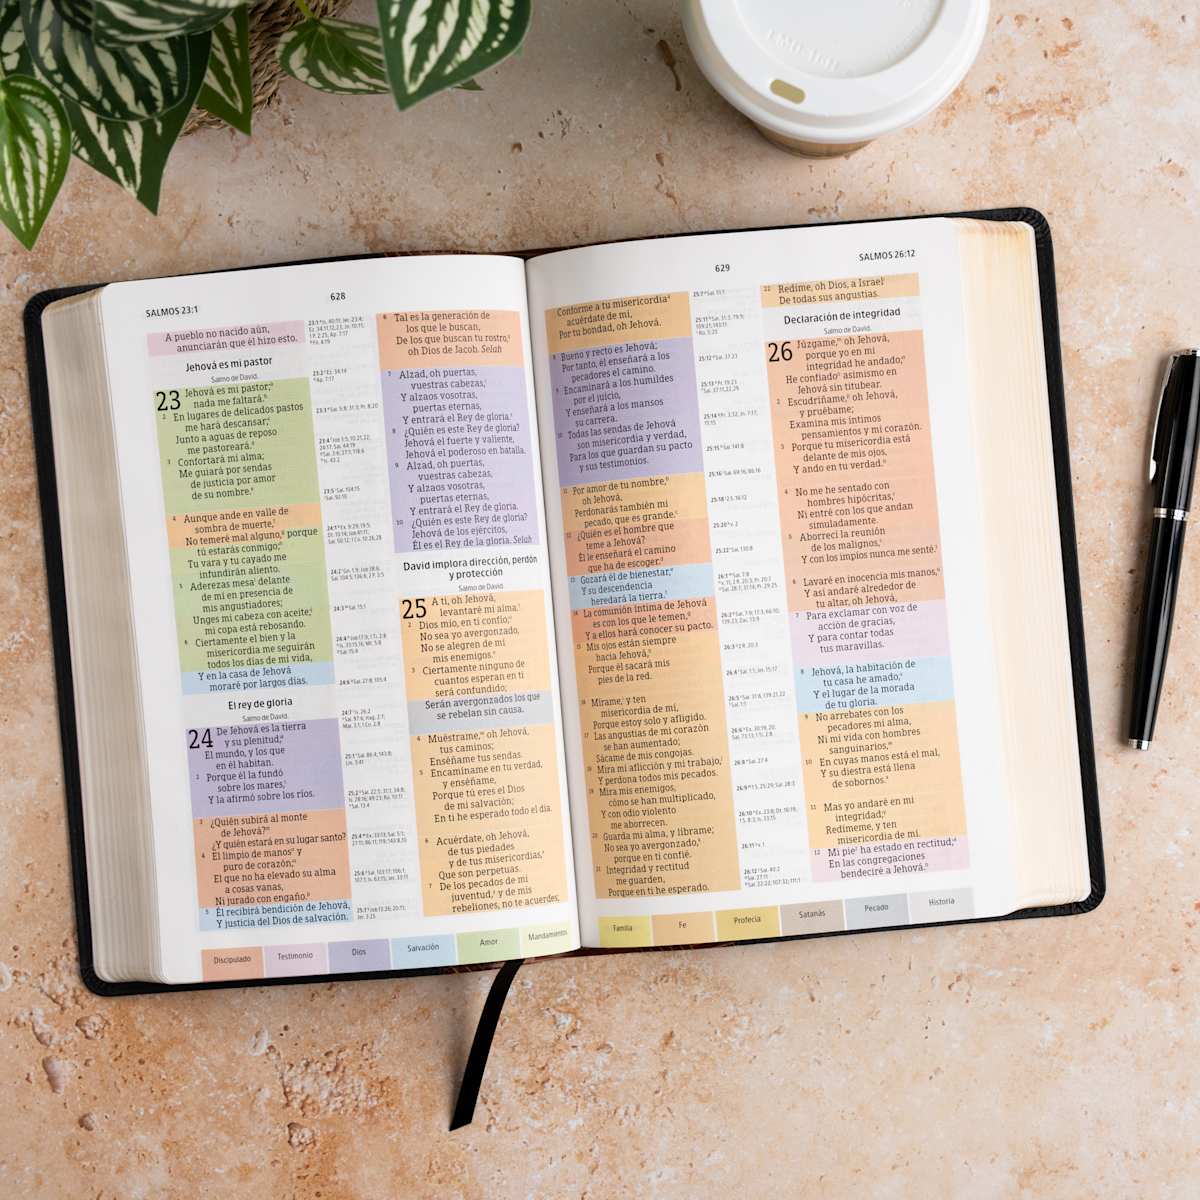 SALMOS 23:1
628
A pueblo no nacido aún,
anunciarán que él hizo esto.
Jehová es mi pastor
Salmo de David.
23 Jehová es mi pastor;
nada me faltará.
2 En lugares de delicados pastos
me hará descansar;
Junto a aguas de reposo
me pastoreará.
3 Confortará mi alma;
Me guiará por sendas
de justicia por amor
de su nombre.
4 Aunque ande en valle de
sombra de muerte,
No temeré mal alguno, porque
tú estarás conmigo;
Tu vara y tu cayado me
infundirán aliento.
5 Aderezas mesa delante
de mí en presencia de
mis angustiadores;
Unges mi cabeza con aceite;
mi copa está rebosando.
6 Ciertamente el bien y la
misericordia me seguirán
todos los días de mi vida,
Y en la casa de Jehová
moraré por largos días.
El rey de gloria
Salmo de David.
24 De Jehová es la tierra
y su plenitud;
El mundo, y los que
en él habitan.
2 Porque él la fundó
sobre los mares,
Y la afirmó sobre los ríos.
3 ¿Quién subirá al monte
de Jehová?
¿Y quién estará en su lugar santo?
4 El limpio de manos y
puro de corazón;
El que no ha elevado su alma
a cosas vanas,
Ni jurado con engaño.
5 Él recibirá bendición de Jehová,
Y justicia del Dios de salvación.
6 Tal es la generación de
los que le buscan,
De los que buscan tu rostro,
oh Dios de Jacob. Selah
7 Alzad, oh puertas,
vuestras cabezas,
Y alzaos vosotras,
puertas eternas,
Y entrará el Rey de gloria.
8 ¿Quién es este Rey de gloria?
Jehová el fuerte y valiente,
Jehová el poderoso en batalla.
9 Alzad, oh puertas,
vuestras cabezas,
Y alzaos vosotras,
puertas eternas,
Y entrará el Rey de gloria.
10 ¿Quién es este Rey de gloria?
Jehová de los ejércitos,
Él es el Rey de la gloria. Selah
David implora dirección, perdón
y protección
Salmo de David.
25 A ti, oh Jehová,
levantaré mi alma.
2 Dios mío, en ti confío;
No sea yo avergonzado,
No se alegren de mí
mis enemigos.
3 Ciertamente ninguno de
cuantos esperan en ti
será confundido;
Serán avergonzados los que
se rebelan sin causa.
4 Muéstrame, oh Jehová,
tus caminos;
Enséñame tus sendas.
5 Encamíname en tu verdad,
y enséñame,
Porque tú eres el Dios
de mi salvación;
En ti he esperado todo el día.
6 Acuérdate, oh Jehová,
de tus piedades
y de tus misericordias,
Que son perpetuas.
7 De los pecados de mi
juventud, y de mis
rebeliones, no te acuerdes;
Discipulado
Testimonio
Dios
Salvación
Amor
Mandamientos
629
SALMOS 26:12
Conforme a tu misericordia
acuérdate de mí,
Por tu bondad, oh Jehová.
8 Bueno y recto es Jehová;
Por tanto, él enseñará a los
pecadores el camino.
9 Encaminará a los humildes
por el juicio,
Y enseñará a los mansos
su carrera.
10 Todas las sendas de Jehová
son misericordia y verdad,
Para los que guardan su pacto
y sus testimonios.
11 Por amor de tu nombre,
oh Jehová,
Perdonarás también mi
pecado, que es grande.
12 ¿Quién es el hombre que
teme a Jehová?
Él le enseñará el camino
que ha de escoger.
13 Gozará él de bienestar,
Y su descendencia
heredará la tierra.
14 La comunión íntima de Jehová
es con los que le temen,
Y a ellos hará conocer su pacto.
15 Mis ojos están siempre
hacia Jehová,
Porque él sacará mis
pies de la red.
16 Mírame, y ten
misericordia de mí,
Porque estoy solo y afligido.
17 Las angustias de mi corazón
se han aumentado;
Sácame de mis congojas.
18 Mira mi aflicción y mi trabajo,
Y perdona todos mis pecados.
19 Mira mis enemigos,
cómo se han multiplicado,
Y con odio violento
me aborrecen.
20 Guarda mi alma, y líbrame;
No sea yo avergonzado,
porque en ti confié.
21 Integridad y rectitud
me guarden,
Porque en ti he esperado.
22 Redime, oh Dios, a Israel
De todas sus angustias.
Declaración de integridad
Salmo de David.
26 Júzgame, oh Jehová,
porque yo en mi
integridad he andado;
He confiado asimismo en
Jehová sin titubear.
2 Escudríñame, oh Jehová,
y pruébame;
Examina mis íntimos
pensamientos y mi corazón.
3 Porque tu misericordia está
delante de mis ojos,
Y ando en tu verdad.
4 No me he sentado con
hombres hipócritas,
Ni entré con los que andan
simuladamente.
5 Aborrecí la reunión
de los malignos,
Y con los impíos nunca me senté.
6 Lavaré en inocencia mis manos,
Y así andaré alrededor de
tu altar, oh Jehová,
7 Para exclamar con voz de
acción de gracias,
Y para contar todas
tus maravillas.
8 Jehová, la habitación de
tu casa he amado,
Y el lugar de la morada
de tu gloria.
9 No arrebates con los
pecadores mi alma,
Ni mi vida con hombres
sanguinarios,
10 En cuyas manos está el mal,
Y su diestra está llena
de sobornos.
11 Mas yo andaré en mi
integridad;
Redímeme, y ten
misericordia de mí.
12 Mi pie ha estado en rectitud;
En las congregaciones
bendeciré a Jehová.
Familia
Fe
Profecía
Satanás
Pecado
Historia